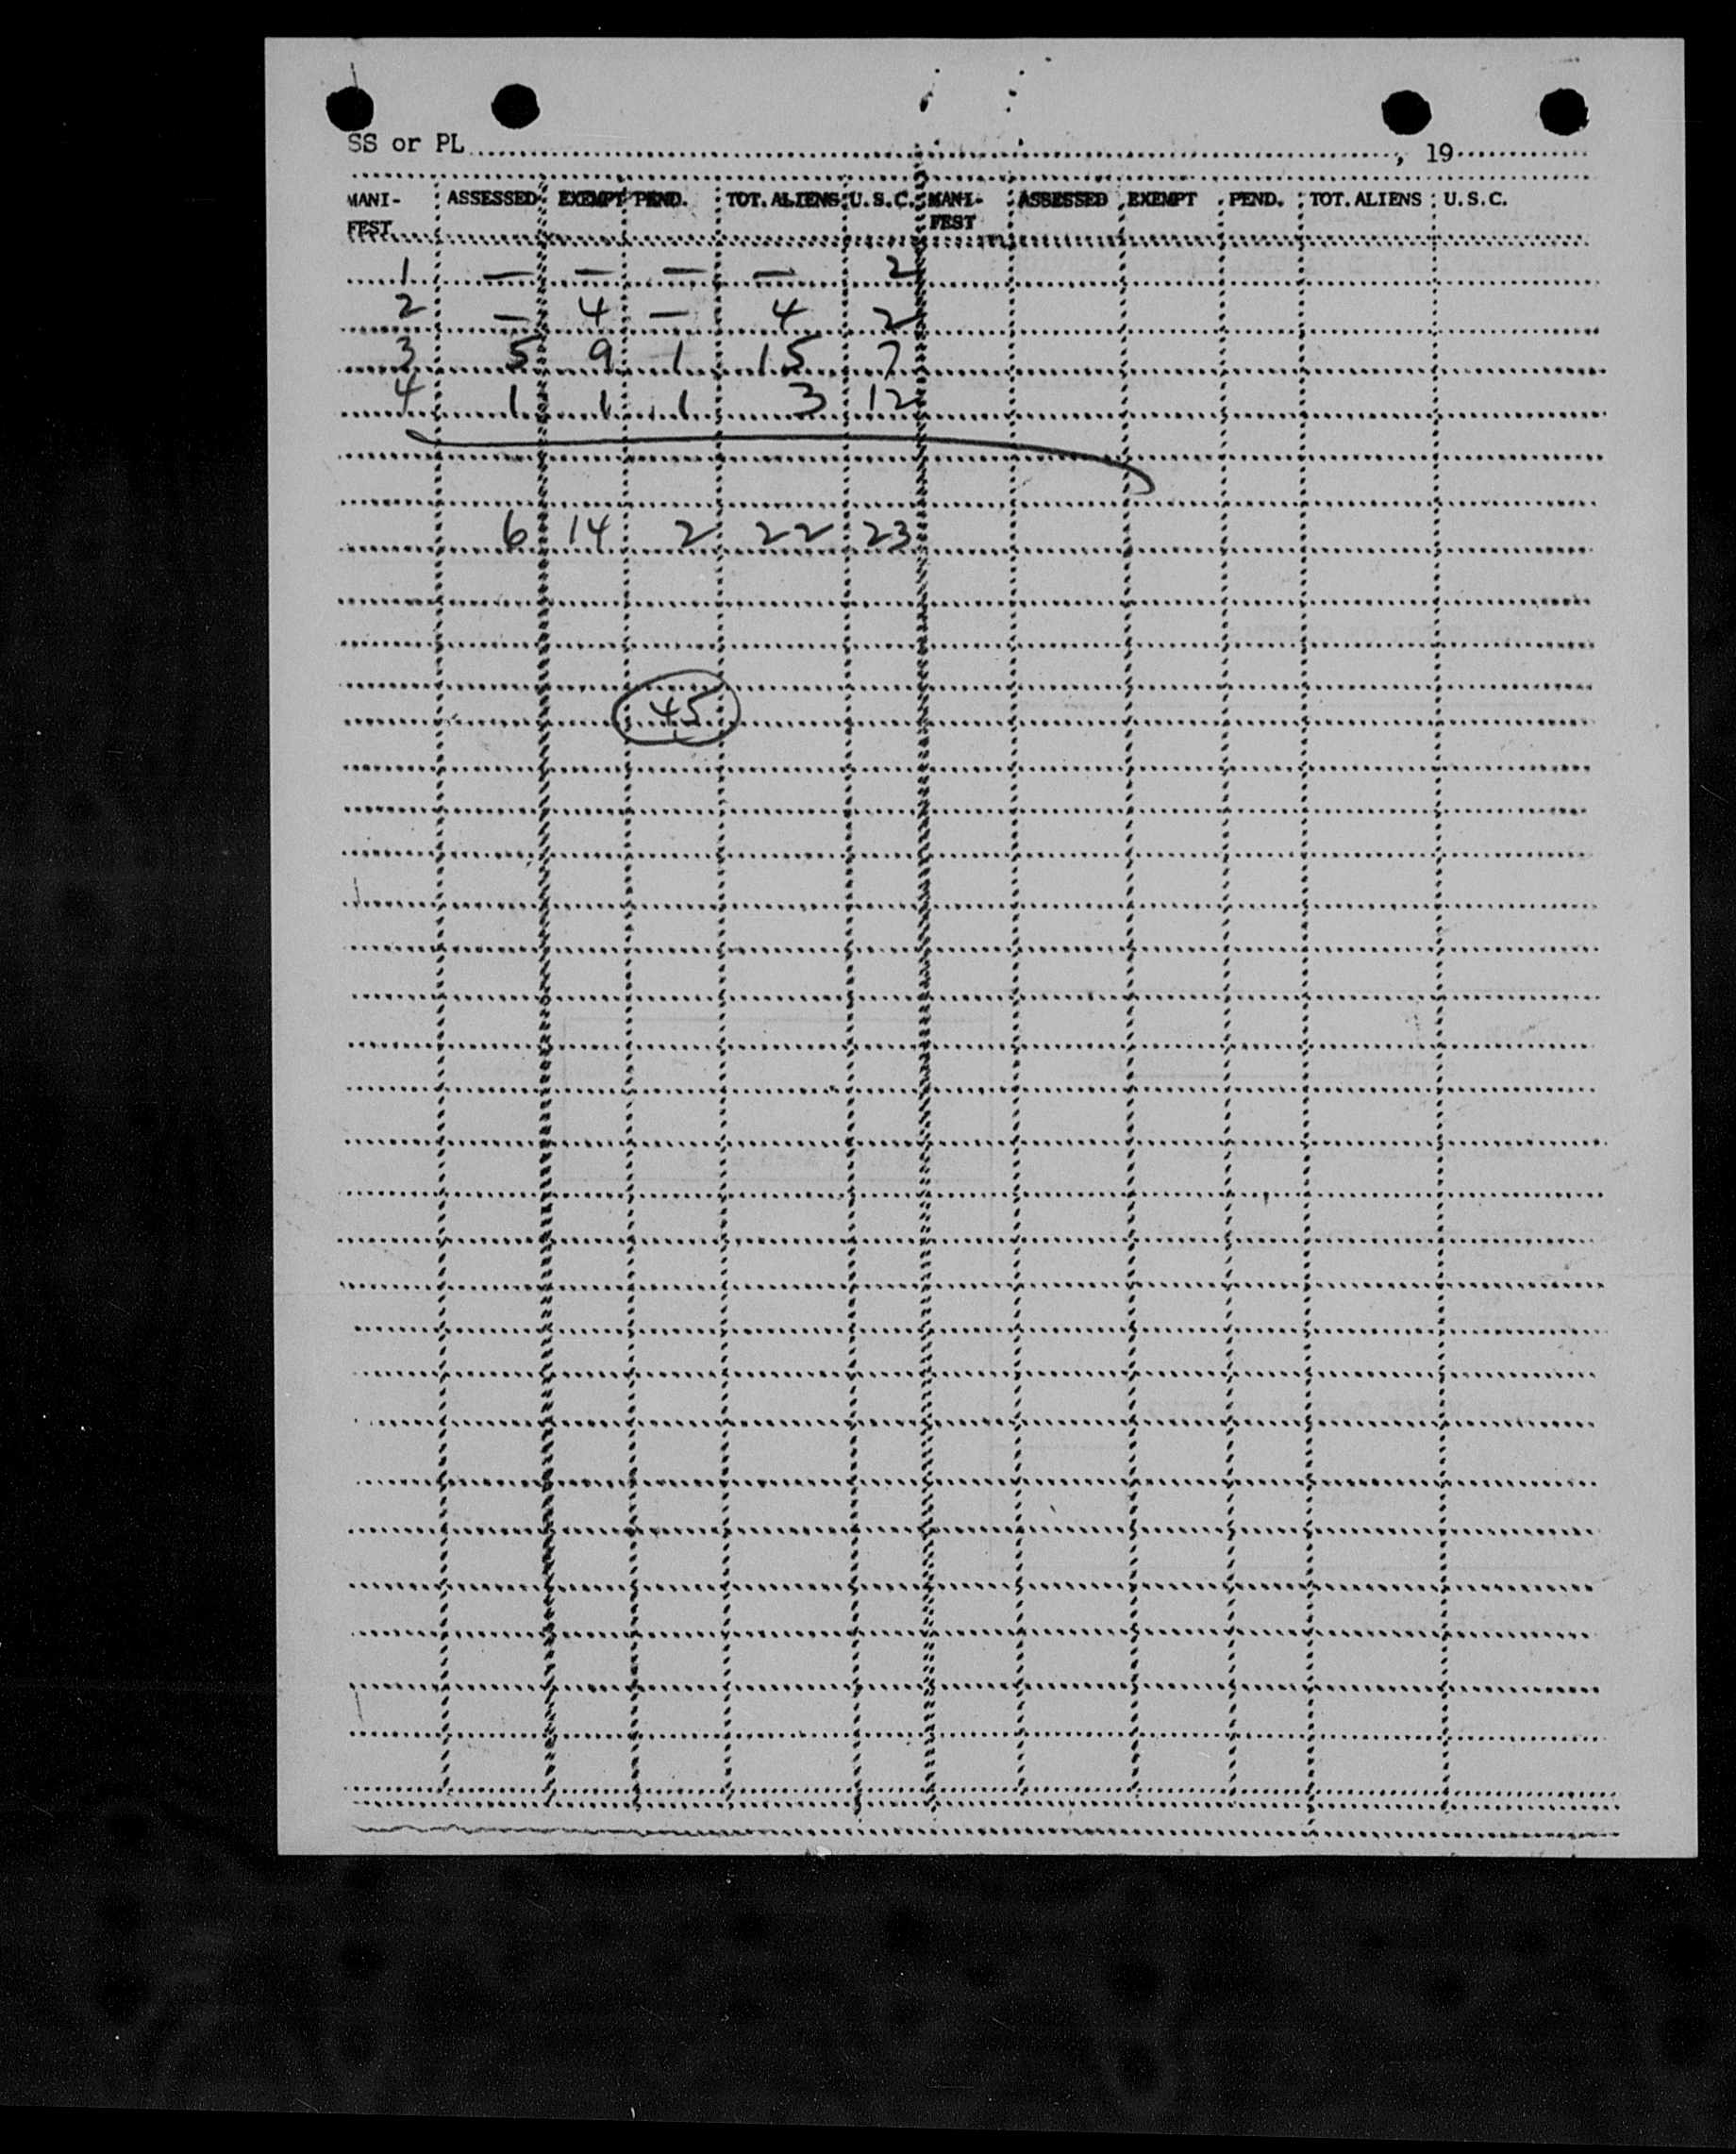 SS or PL, 19
MANI-FEST ASSESSED EXEMPT PEND. TOT. ALIENS U.S.C. MANI-FEST ASSESSED EXEMPT PEND. TOT. ALIENS U.S.C.
1 — — — — 2
2 — 4 — 4 2
3 5 9 1 15 7
4 1 1 1 3 12
6 14 2 22 23
45